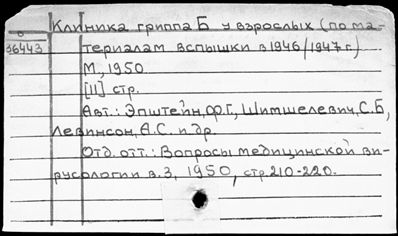 Клиника гриппа Б у взрослых (по ма-
териалам вспышки в 1946/1947 г.)
36443
М, 1950
[11] стр.
Авт.: Эпштейн, Ф.Г., Шимшелевич, С.Б,
Левинсон, А.С. и др.
Отд. отт.: Вопросы медицинской ви-
русологии в.3, 1950, стр. 210-220.